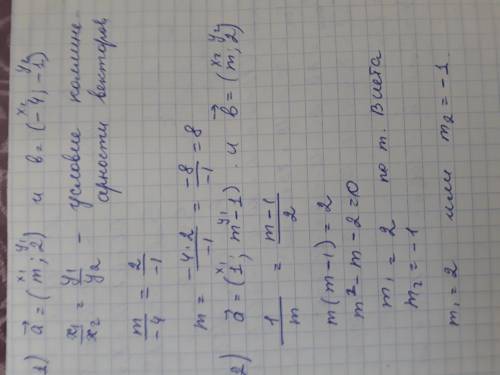 1) a⃗ = (m; 2) и b = (-4; -1)
x₁ y₁ x₂ y₂
x₁/x₂ = y₁/y₂ - условие коллине-
арности векторов
m/-4 = 2/-1
m = -4·2/-1 = -8/-1 = 8
2) a⃗ = (1; m-1) и b⃗ = (m; 2)
x₁ y₁ x₂ y₂
1/m = m-1/2
m(m-1) = 2
m²-m-2=0
m₁ = 2 по т. Виета
m₂ = -1
m₁ = 2 или m₂ = -1